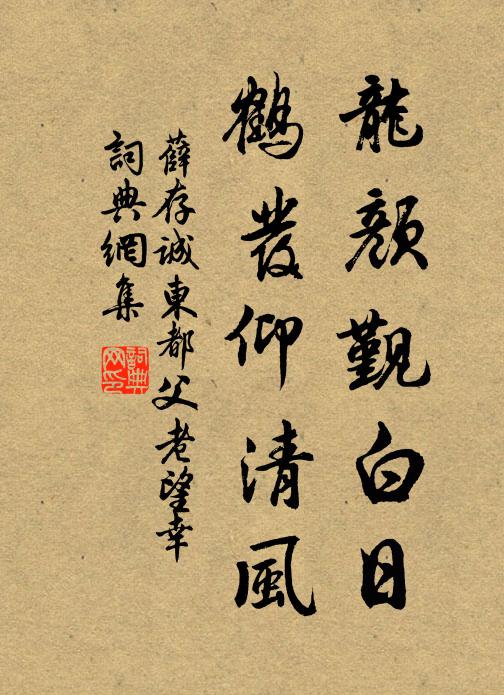 龍顏覲白日
鶴發仰清風
薛存誠東都父老望幸
詞典網集
詞典网印